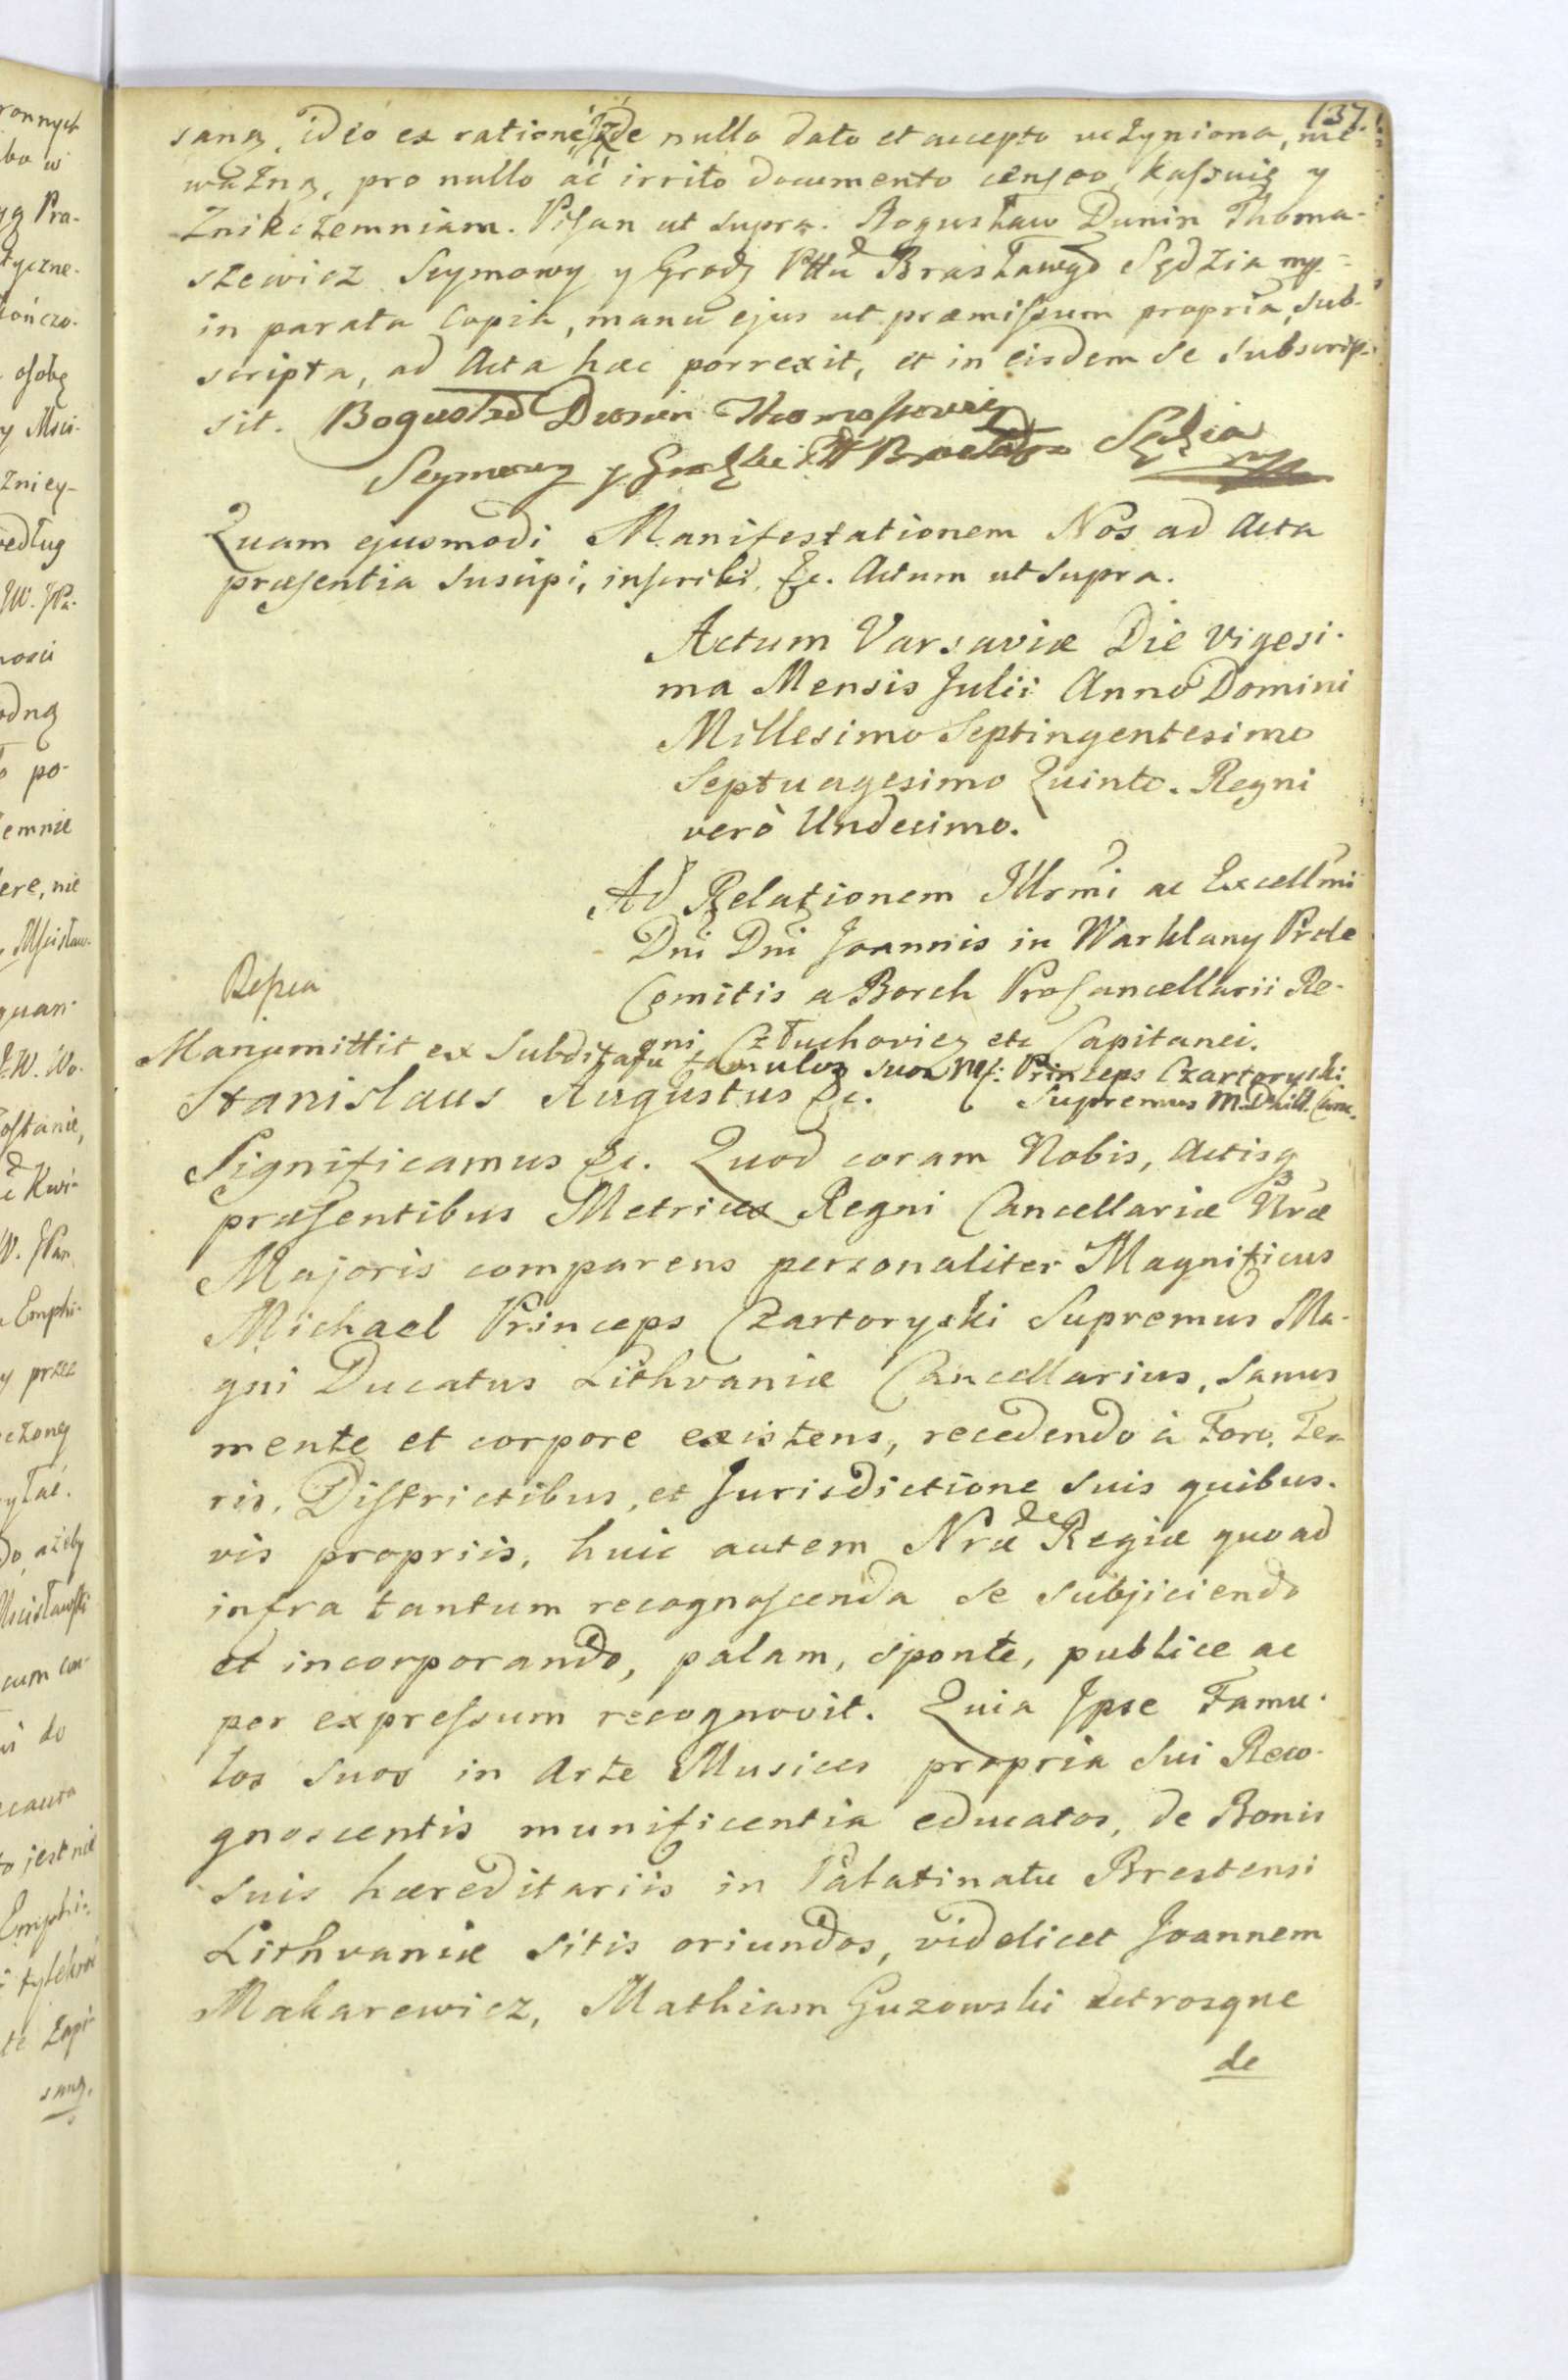 137.
saną, ideo ex ratione de nullo dato et accepto uczyniona, nie-
ważną, pro nullo ac irrito documento censeo, kassuię y
Znikczemniam. Pisan ut supra. Bogusław Dunin Thoma-
szewicz Seymowy y Grodz Pttu Brasławgo Sędzia mp.
in parata Copia, manu ejus ut præmissum propria, sub-
scripta, ad Acta hæc porrexit, et in eisdem se subscrip-
sit. Bogusław Dunin Thomaszewicz
Seymowy y Grodzki Ptt Brasław Sędzia mp
Quam ejusmodi Manifestationem Nos ad Acta
præsentia suscipi, inscribi, &c. Actum ut supra.
Actum Varsaviæ Die Vigesi-
ma Mensis Julii Anno Domini
Millesimo Septingentesimo
Septuagesimo Quinto. Regni
verò Undecimo.
Ad Relationem Illrmi ac Excellmi
Dni Dni Joannis in Warklany Prele
Comitis a Borch ProCancellarii Re-
gni Człuchoviez etc Capitanei.
Manumittit ex Subditatu famulos suos M: Princeps Czartoryski
Supremus M. D. Litt. Canc.
Stanislaus Augustus &c.
Significamus &c. Quod coram Nobis, Actisq
præsentibus Metrices Regni Cancellariæ Nræ
Majoris comparens personaliter Magnificus
Michael Princeps Czartoryski Supremus Ma-
gni Ducatus Lithvaniæ Cancellarius, sanus
mente et corpore existens, recedendo à Foro, Ter-
ris, Districtibus, et Jurisdictione suis quibus-
vis propriis, huic autem Nræ Regiæ quoad
infra tantum recognoscenda se subjiciendo
et incorporando, palam, sponte, publice ac
per expressum recognovit. Quia Ipse Famu-
los suos in Arte Musices propria sui Reco-
gnoscentis munificentia educatos, de Bonis
suis hæreditariis in Palatinatu Brestensi
Lithvaniæ sitis oriundos, videlicet Joannem
Makarewicz, Mathiam Guzowski utrosque
de